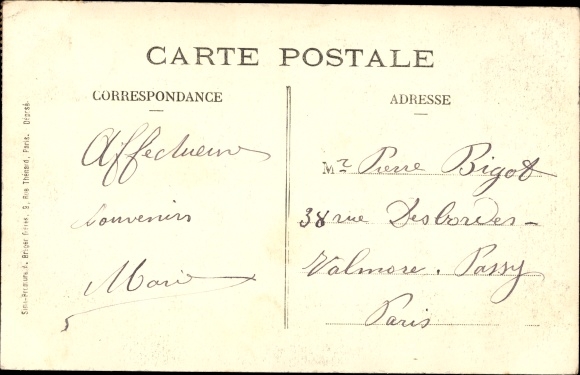 CARTE POSTALE
CORRESPONDANCE
Affectueux
souvenirs
Marie
ADRESSE
Mr Pierre Bigot
38 rue Desbordes-
Valmore. Passy
Paris
Breger Frères, 9, Rue Thénard, Paris. Déposé.